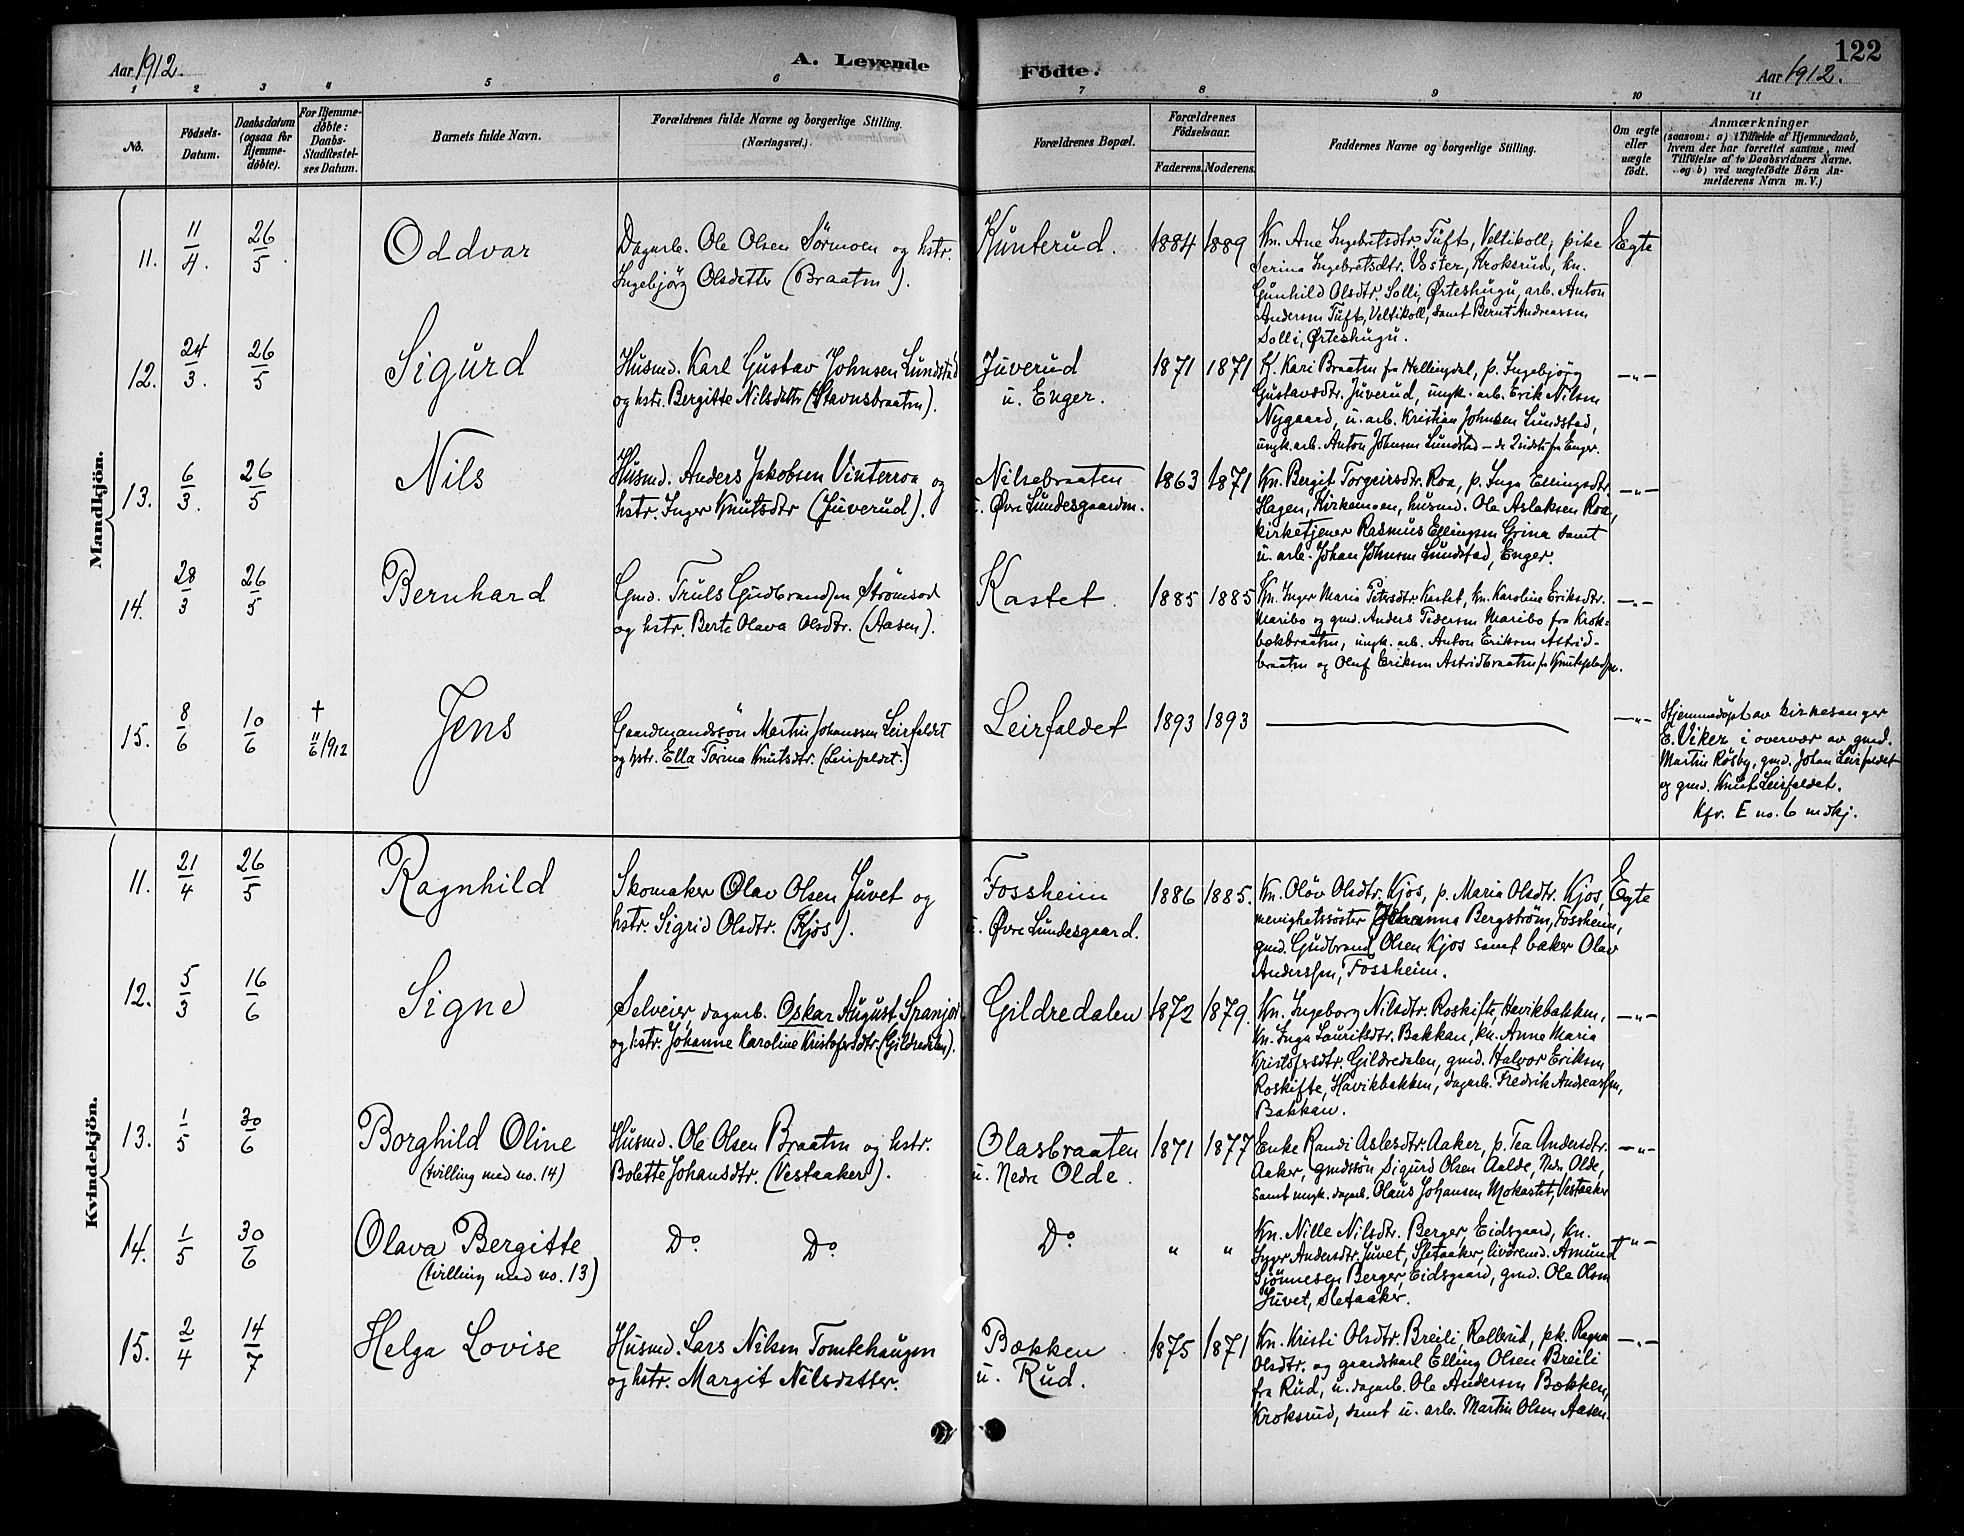 Aar 1912.
A. Levende
Födte.
122
Aar 1912.
1 2 3 4 5 6 7 8 9 10 11
No.
Födsels-
Datum.
Daabsdatum
(ogsaa for
Hjemme-
døbte).
For Hjemme-
døbte:
Daabs-
Stadfestel-
ses Datum.
Barnets fulde Navn.
Forældrenes fulde Navne og borgerlige Stilling.
(Næringsvei.)
Forældrenes Bopæl.
Forældrenes
Födselsaar.
Faderens. Moderens.
Faddernes Navne og borgerlige Stilling.
Om ægte
eller
uægte
födt.
Anmærkninger
(saasom: a) i Tilfælde af Hjemmedaab,
hvem der har forrettet samme, med
Tilföielse af to Daabsvidners Navne.
og b) ved uægtefödte Börn An-
melderens Navn m. V.)
Mandkjön.
11. 11/4. 26/5. Oddvar
Dagarb. Ole Olsen Sörmoen og hstr.
Ingebjörg Olsdatter (Braaten).
Kunterud. 1884 1889
Kn. Ane Ingebretsdtr. Tuft, Veltikoll, pike
Serina Ingebretsdtr. Vøster, Kroksrud, kn.
Gunhild Olsdtr. Solli, Ørteshugu, arb. Anton
Andersen Tuft, Veltikoll, samt Bernt Andreassen
Solli, Ørteshugu.
Egte
12. 24/3. 26/5 Sigurd
Husmd. Karl Gustav Johnsen Lundstad
og hstr. Bergitte Nilsdatter (Stavnsbraaten).
Juverud
u. Enger.
1871 1871
K. Kari Braaten fra Hallingdal, p. Ingebjörg
Gustavsdtr. Juverud, ungk. arb. Erik Nilsen
Nygaard, u. arb. Kristian Johnsen Lundstad,
ungk. arb. Anton Johnsen Lundstad – de 2 sidste fra Enger.
—„—
13. 6/3. 26/5 Nils
Husmd. Anders Jakobsen Vinterroa og
hstr. Inger Knutsdtr (Juverud).
Nilsebraaten
u. Øvre Lundesgaarden.
1863 1871
Kn. Bergit Torgeirsdtr. Roa, p. Inga Ellingsdtr.
Hagen, Kirkemoen, husmd. Ole Aslaksen Roa,
kirketjener Rasmus Ellingsen Grina samt
u. arb. Johan Johnsen Lundstad, Enger.
—„—
14. 28/3 26/5 Bernhard
Gmd. Truls Gudbrandsen Strömsod
og hstr. Berte Olava Olsdtr. (Aasen).
Kastet. 1885 1885
Kn. Inger Maria Petersdtr. Kastet, kn. Karoline Eriksdtr.
Maribo og gmd. Anders Pedersen Maribo fra Krok-
bækbraaten, ungk. arb. Anton Eriksen Astrid-
braaten og Oluf Eriksen Astridbraaten
—„—
15. 8/6 10/6 † 11/6 1912 Jens
Gaardmandssön Martin Johansen Leirfaldet
og hstr. Ella Torina Knutsdtr. (Leirfaldet.)
Leirfaldet 1893 1893
—„—
Hjemmedöpt av kirkesanger
E. Viker i overvær av gmd.
Martin Røsby, gmd. Johan Leirfaldet
og gmd. Knut Leirfaldet.
Kfr. E no. 6 mdkj.
Kvindekjön.
11. 21/4 26/5 Ragnhild
Skomaker Olav Olsen Juvet og
hstr. Sigrid Olsdtr. (Kjos).
Fossheim
u. Øvre Lundesgaard.
1886 1885.
Kn. Olöv Olsdtr. Kjos, p. Maria Olsdtr. Kjos,
menighetssöster Johanna Bergström, Fossheim,
gmd. Gudbrand Olsen Kjos samt baker Olav
Anderssen, Fossheim.
Egte
12. 5/3 16/6 Signe
Selveier, dagarb. Oskar August Spanjer
og hstr. Johanne Karoline Kristofersdtr. (Gildredalen).
Gildredalen 1872 1879.
Kn. Ingeborg Nilsdtr. Roskifte, Havikbakken,
kn. Inga Lauritsdtr. Bakkan, kn. Anne Maria
Kristofersdtr. Gildredalen, gmd. Halvor Eriksen
Roskifte, Havikbakken, dagarb. Fredrik Andreassen,
Bakkan.
—„—
13. 1/5 30/6 Borghild Oline
(tvilling med no. 14)
Husmd. Ole Olsen Braaten og hstr.
Bolette Johansdtr. (Vestaaker).
Olasbraaten
u. Nedre Olde.
1871 1877
Enke Randi Aslesdtr. Aaker, p. Tea Andersdtr.
Aaker, gmdssön Sigurd Olsen Aalde, Ndr. Olde,
samt ungk. dagarb. Olaus Johansen Mokastet, Vestaaker
—„—
14. 1/5 30/6 Olava Bergitte
(tvilling med no. 13)
Do Do
Do
„ „
Kn. Nille Nilsdtr. Berger, Eidsgaard, kn.
Sygr Andersdtr. Juvet, Sletaaker, livöremd. Amund
Sjönnesen Berger, Eidsgaard, gmd. Ole Olsen
Juvet, Sletaaker.
—„—
15. 2/4 14/7 Helga Lovise
Husmd. Lars Nilsen Tomtehaugen
og hstr. Margit Nilsdatter.
Bækken
u. Rud.
1875 1871
Kn. Kristi Olsdtr. Breili, Rallerud, pk. Ragna
Olsdtr. og gaardskarl Elling Olsen Breili
fra Rud, u. dagarb. Ole Andersen Bækken,
Kroksrud, samt u. arb. Martin Olsen Aasen.
—„—